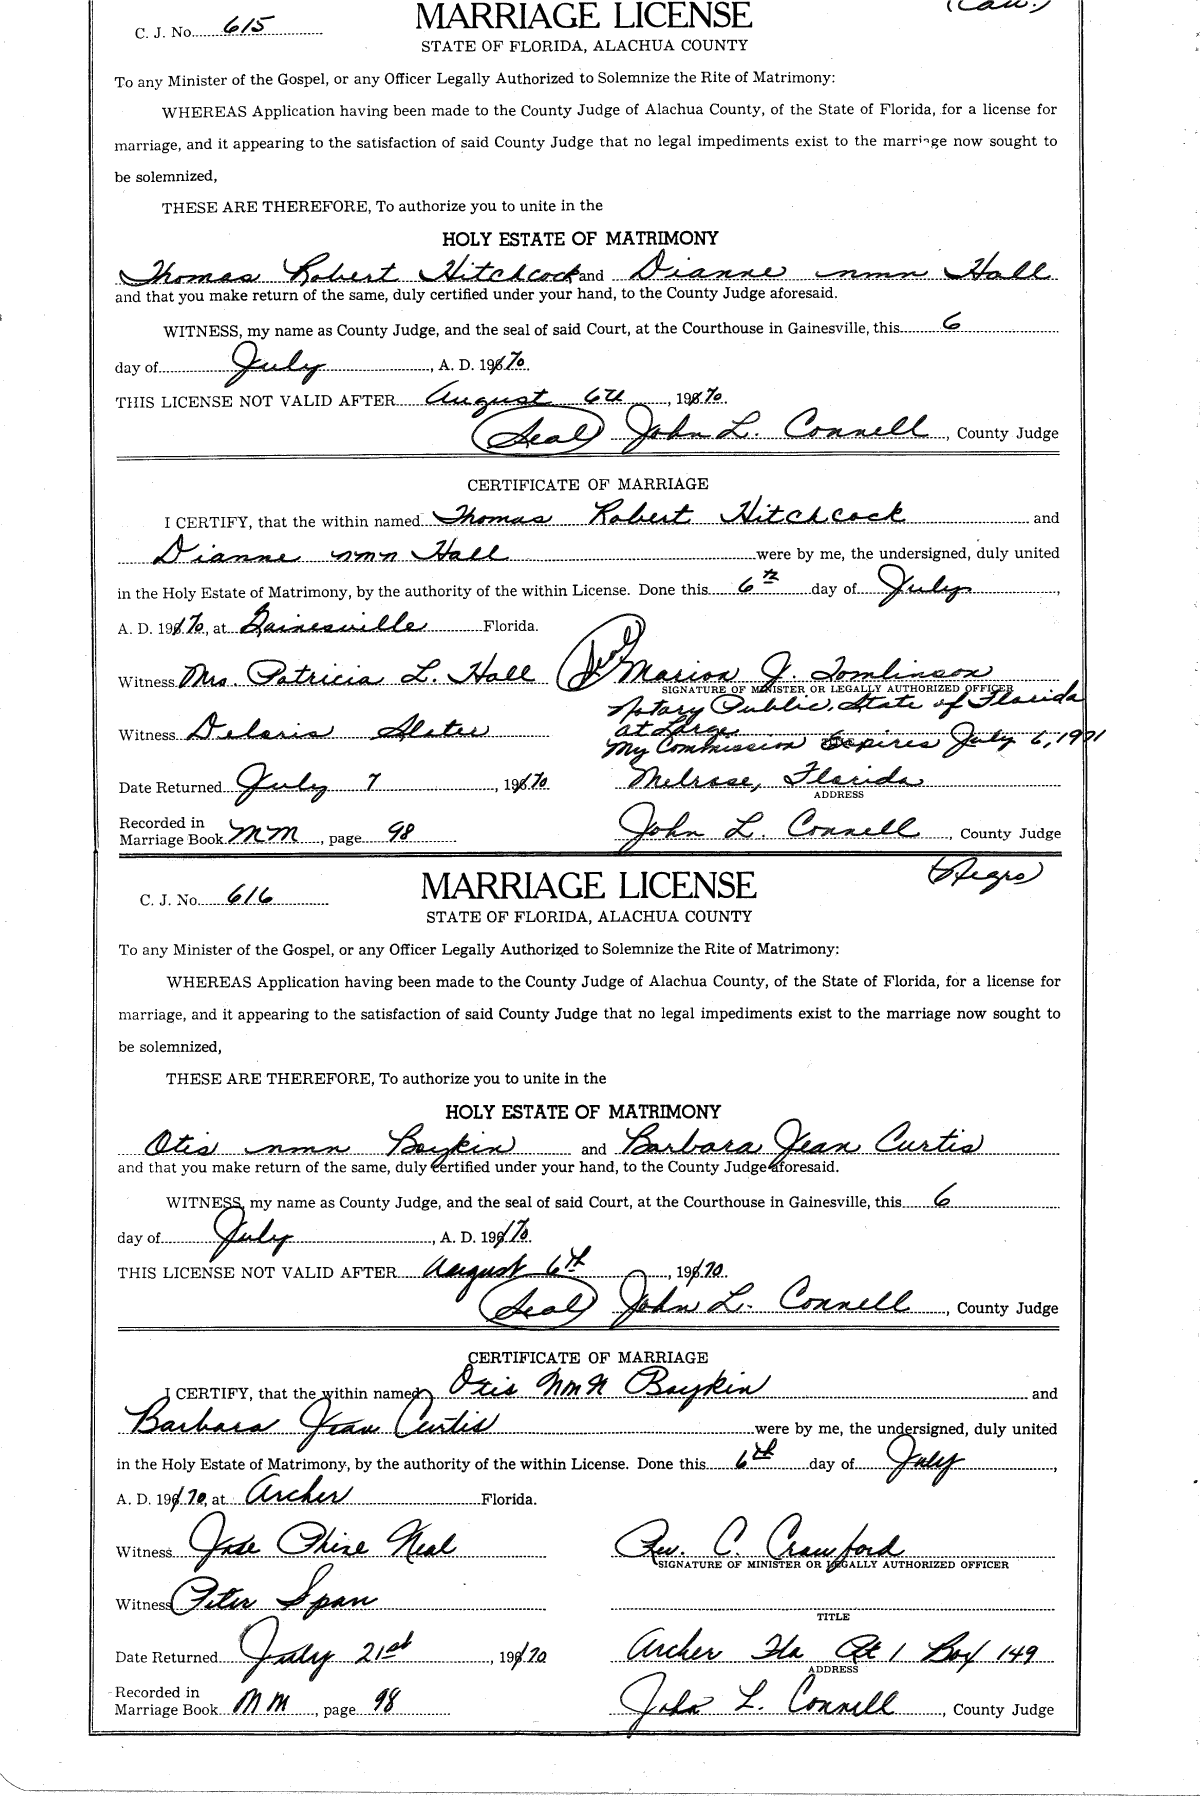 (Cau.)
C. J. No. 615
MARRIAGE LICENSE
STATE OF FLORIDA, ALACHUA COUNTY
To any Minister of the Gospel, or any Officer Legally Authorized to Solemnize the Rite of Matrimony:
WHEREAS Application having been made to the County Judge of Alachua County, of the State of Florida, for a license for
marriage, and it appearing to the satisfaction of said County Judge that no legal impediments exist to the marriage now sought to
be solemnized,
THESE ARE THEREFORE, To authorize you to unite in the
HOLY ESTATE OF MATRIMONY
Thomas Robert Hitchcock and Dianne nmn Hall
and that you make return of the same, duly certified under your hand, to the County Judge aforesaid.
WITNESS, my name as County Judge, and the seal of said Court, at the Courthouse in Gainesville, this 6
day of July, A. D. 1970.
THIS LICENSE NOT VALID AFTER August 6th, 1970.
(Seal) John L. Connell, County Judge
CERTIFICATE OF MARRIAGE
I CERTIFY, that the within named Thomas Robert Hitchcock and
Dianne nmn Hall were by me, the undersigned, duly united
in the Holy Estate of Matrimony, by the authority of the within License. Done this 6th day of July,
A. D. 1970, at Gainesville Florida.
Witness Mrs. Patricia L. Hall (Seal) Marion J. Tomlinson
SIGNATURE OF MINISTER OR LEGALLY AUTHORIZED OFFICER
Notary Public, State of Florida
at Large
Witness Deloris Slater My Commission Expires July 6, 1971
Date Returned July 7, 1970 Melrose, Florida
ADDRESS
Recorded in
Marriage Book MM, page 98 John L. Connell, County Judge
(Negro)
C. J. No. 616
MARRIAGE LICENSE
STATE OF FLORIDA, ALACHUA COUNTY
To any Minister of the Gospel, or any Officer Legally Authorized to Solemnize the Rite of Matrimony:
WHEREAS Application having been made to the County Judge of Alachua County, of the State of Florida, for a license for
marriage, and it appearing to the satisfaction of said County Judge that no legal impediments exist to the marriage now sought to
be solemnized,
THESE ARE THEREFORE, To authorize you to unite in the
HOLY ESTATE OF MATRIMONY
Otis nmn Boykin and Barbara Jean Curtis
and that you make return of the same, duly certified under your hand, to the County Judge aforesaid.
WITNESS, my name as County Judge, and the seal of said Court, at the Courthouse in Gainesville, this 6
day of July, A. D. 1970.
THIS LICENSE NOT VALID AFTER August 6th, 1970.
(Seal) John L. Connell, County Judge
CERTIFICATE OF MARRIAGE
I CERTIFY, that the within named Otis NMN Boykin and
Barbara Jean Curtis were by me, the undersigned, duly united
in the Holy Estate of Matrimony, by the authority of the within License. Done this 6th day of July,
A. D. 1970, at Archer Florida.
Witness Neal Rev. C. Crawford
SIGNATURE OF MINISTER OR LEGALLY AUTHORIZED OFFICER
Witness Peter Span
TITLE
Date Returned July 21st, 1970 Archer Fla Rt 1 Box 149
ADDRESS
Recorded in
Marriage Book MM, page 98 John L. Connell, County Judge